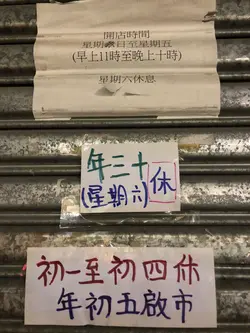 開店時間
星期日至星期五
(早上11時至晚上十時)
星期六休息
年三十
(星期六) 休
初一至初四休
年初五啟市